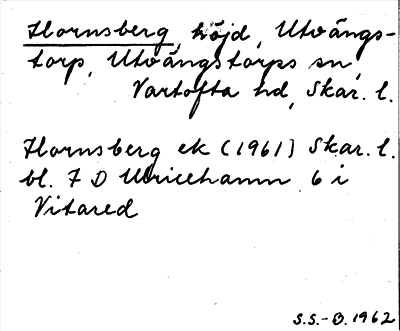 Hornsberg, höjd, Utvängs-
torp, Utvängstorps sn,
Vartofta hd, Skar. l.
Hornsberg ek (1961) Skar. l.
bl. 7 D Ulricehamn 6 i
Vitared
S.S.-B. 1962